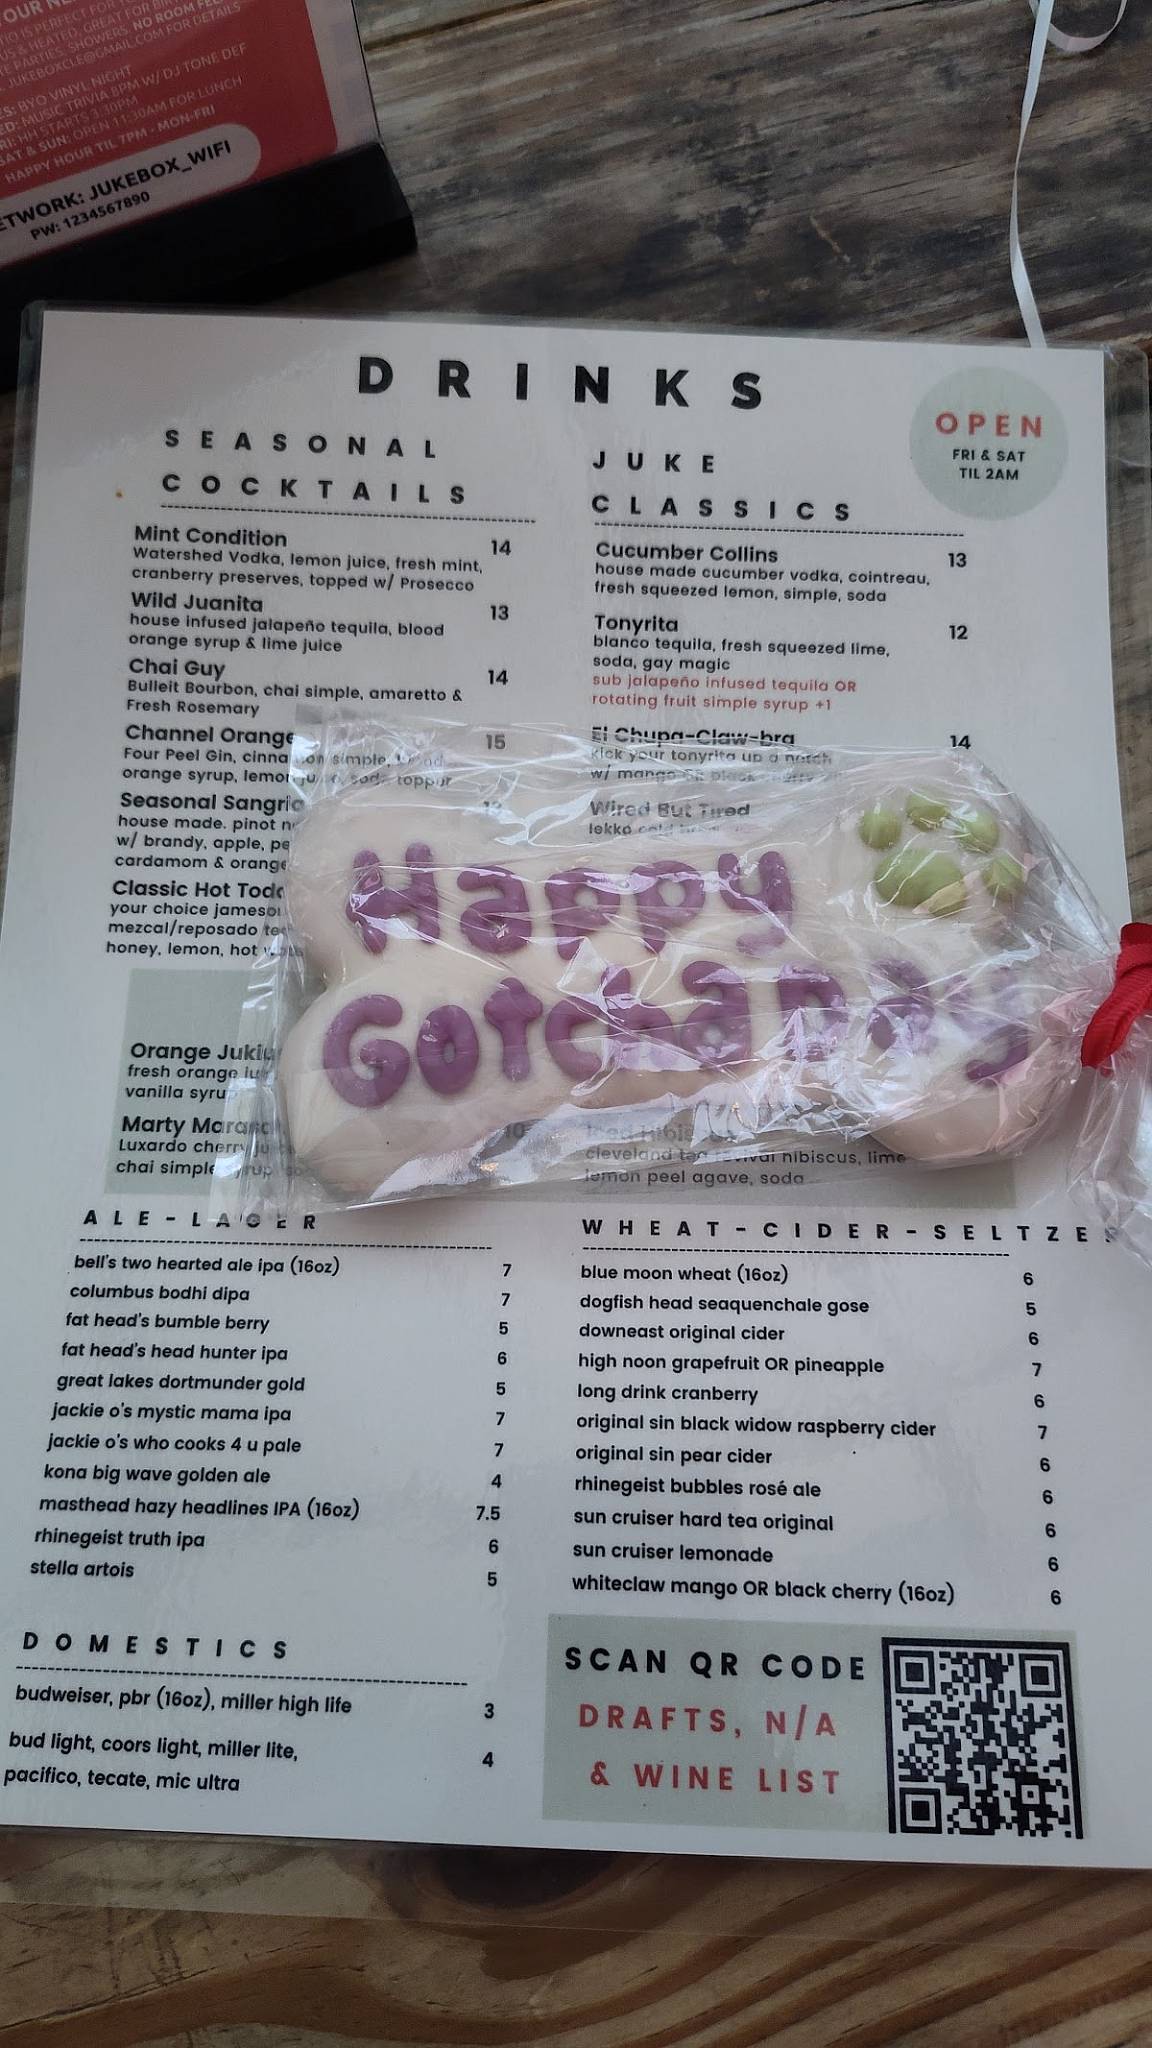 YOUR
IO IS PERFECT FOR
US & HEATED, GREAT FOR
TE PARTIES, SHOWERS. NO ROOM FEE
JUKEBOXCLE@GMAIL.COM FOR DETAILS
ES: BYO VINYL NIGHT
ED: MUSIC TRIVIA 8PM W/ DJ TONE DEF
RI: HH STARTS 3:30PM
SAT & SUN: OPEN 11:30AM FOR LUNCH
HAPPY HOUR TIL 7PM - MON-FRI
ETWORK: JUKEBOX_WIFI
PW: 1234567890
DRINKS
OPEN
FRI & SAT
TIL 2AM
SEASONAL
COCKTAILS
Mint Condition 14
Watershed Vodka, lemon juice, fresh mint,
cranberry preserves, topped w/ Prosecco
Wild Juanita 13
house infused jalapeño tequila, blood
orange syrup & lime juice
Chai Guy 14
Bulleit Bourbon, chai simple, amaretto &
Fresh Rosemary
Channel Orange 15
Four Peel Gin, cinnamon simple, blood
orange syrup, lemon juice, soda topper
Seasonal Sangria 13
house made. pinot
w/ brandy, apple,
cardamom & orange
Classic Hot Toddy
your choice jameson
mezcal/reposado
honey, lemon, hot water
JUKE
CLASSICS
Cucumber Collins 13
house made cucumber vodka, cointreau,
fresh squeezed lemon, simple, soda
Tonyrita 12
blanco tequila, fresh squeezed lime,
soda, gay magic
sub jalapeño infused tequila OR
rotating fruit simple syrup +1
El Chupa-Claw-bra 14
kick your tonyrita up a notch
w/ mango OR black cherry
Wired But Tired
lekko cold brew
Happy
Gotcha Day
Orange
fresh orange
vanilla syrup
Marty 10
Luxardo cherry
chai simple syrup
Iced Hibiscus
cleveland tea revival hibiscus, lime
lemon peel agave, soda
ALE-LAGER
bell's two hearted ale ipa (16oz) 7
columbus bodhi dipa 7
fat head's bumble berry 5
fat head's head hunter ipa 6
great lakes dortmunder gold 5
jackie o's mystic mama ipa 7
jackie o's who cooks 4 u pale 7
kona big wave golden ale 4
masthead hazy headlines IPA (16oz) 7.5
rhinegeist truth ipa 6
stella artois 5
WHEAT-CIDER-SELTZER
blue moon wheat (16oz) 6
dogfish head seaquenchale gose 5
downeast original cider 6
high noon grapefruit OR pineapple 7
long drink cranberry 6
original sin black widow raspberry cider 7
original sin pear cider 6
rhinegeist bubbles rosé ale 6
sun cruiser hard tea original 6
sun cruiser lemonade 6
whiteclaw mango OR black cherry (16oz) 6
DOMESTICS
budweiser, pbr (16oz), miller high life 3
bud light, coors light, miller lite, 4
pacifico, tecate, mic ultra
SCAN QR CODE
DRAFTS, N/A
& WINE LIST